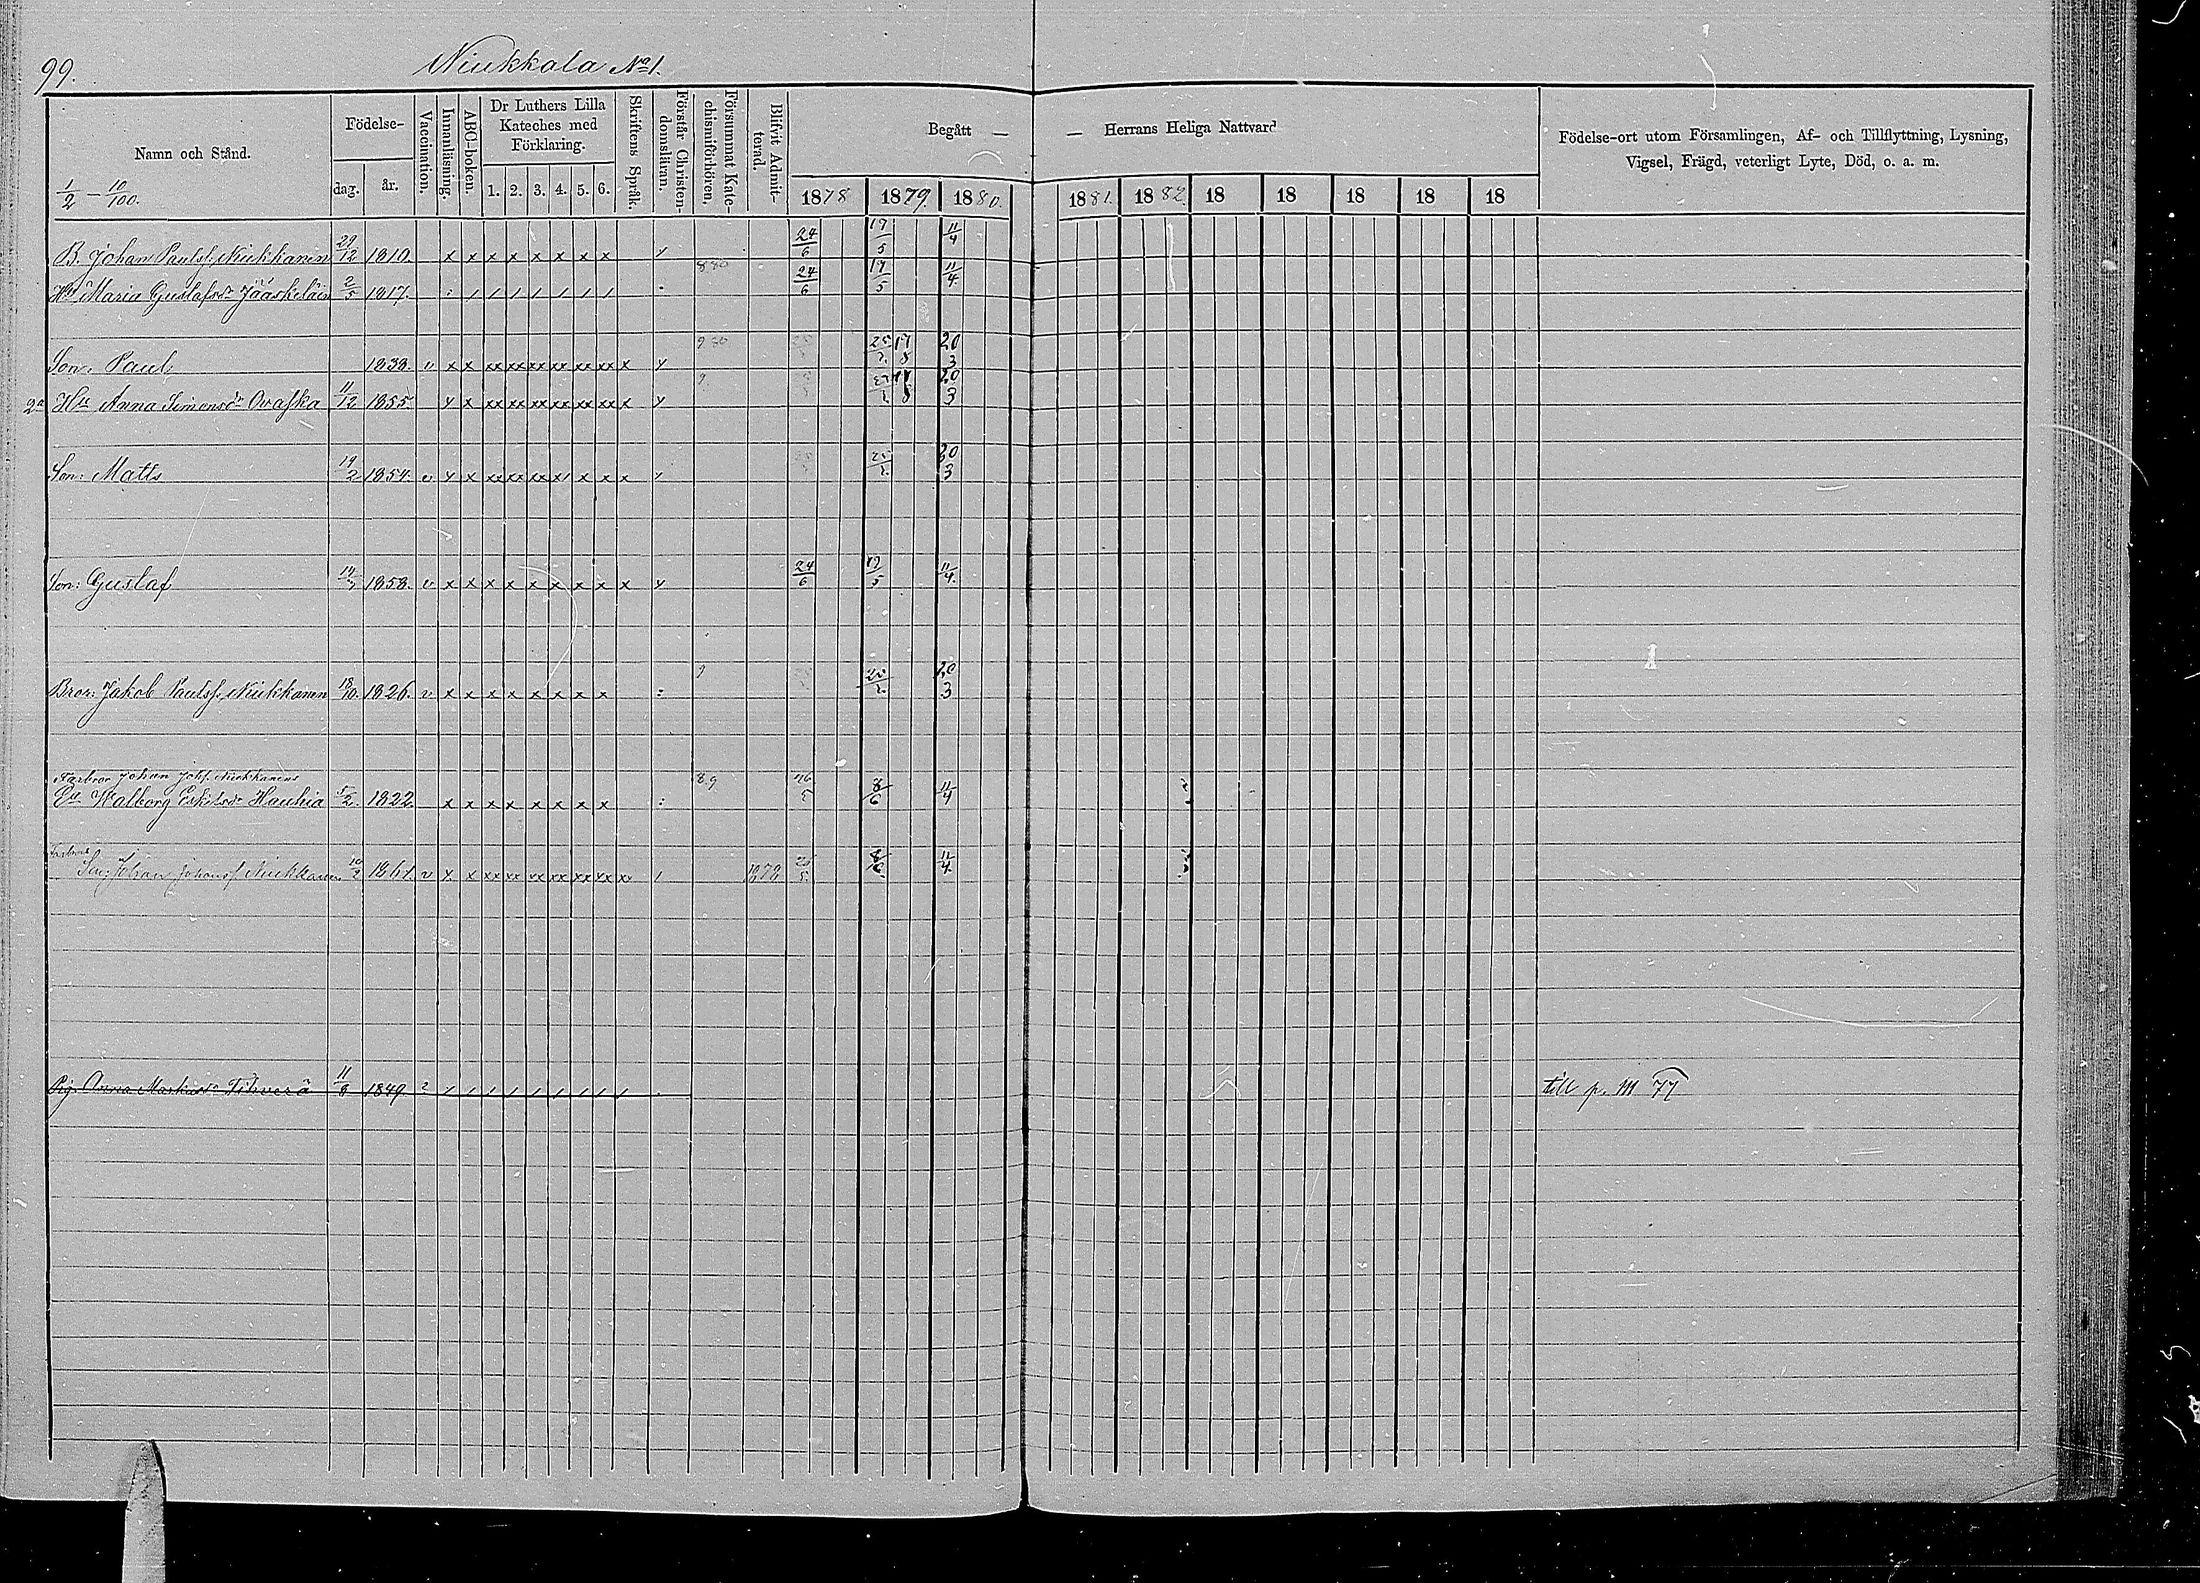 99.
Niukkala No 1.
Namn och Stånd.
1/2 – 10/100.
Födelse-
dag. år.
Vaccination.
Innanläsning.
ABC-boken.
Dr Luthers Lilla
Kateches med
Förklaring.
1. 2. 3. 4. 5. 6.
Skriftens Språk.
Förstår Christen-
domsläran.
Försummat Kate-
chismiförhören,
Blifvit Admit-
terad.
Begått — — Herrans Heliga Nattvard
1878 1879. 1880. 1881. 1882. 18 18 18 18 18
Födelse-ort utom Församlingen, Af- och Tillflyttning, Lysning,
Vigsel, Frägd, veterligt Lyte, Död, o. a. m.
B. Johan Paulsf. Niukkanen 29/12 1810. x x x x x x x x 24/6 19/5 11/4
Hu Maria Gustafsdr Jääskeläin 2/5 1817. 24/6 19/5 11/4
Son: Paul 1838. v x x xx xx xx xx xx xx x 20/3
2a Hu Anna Simonsdr Ovaska 11/12 1855. x xx xx xx xx xx xx x 20/3
Son: Matts 19/2 1854. v x xx xx xx x x x 20/3
Son: Gustaf 1858. v x x x x x x x x x 24/6 19/5 11/4.
Bror: Jakob Paulsf. Niukkanen 18/10. 1826. v x x x x x x x x 20/3
Farbror Johan Johsf. Niukkanens
Walborg Eskilsdr Hauhia 1822 x x x x x x x x 8/6 11/4
Farbrors
Son: Johan Johansf Niukkanen 1861. v x x xx xx xx xx xx xx xx 1878 8/6 11/4
Pig. Anna Markusdr Tihverä 11/8 1849.
till p. M 77